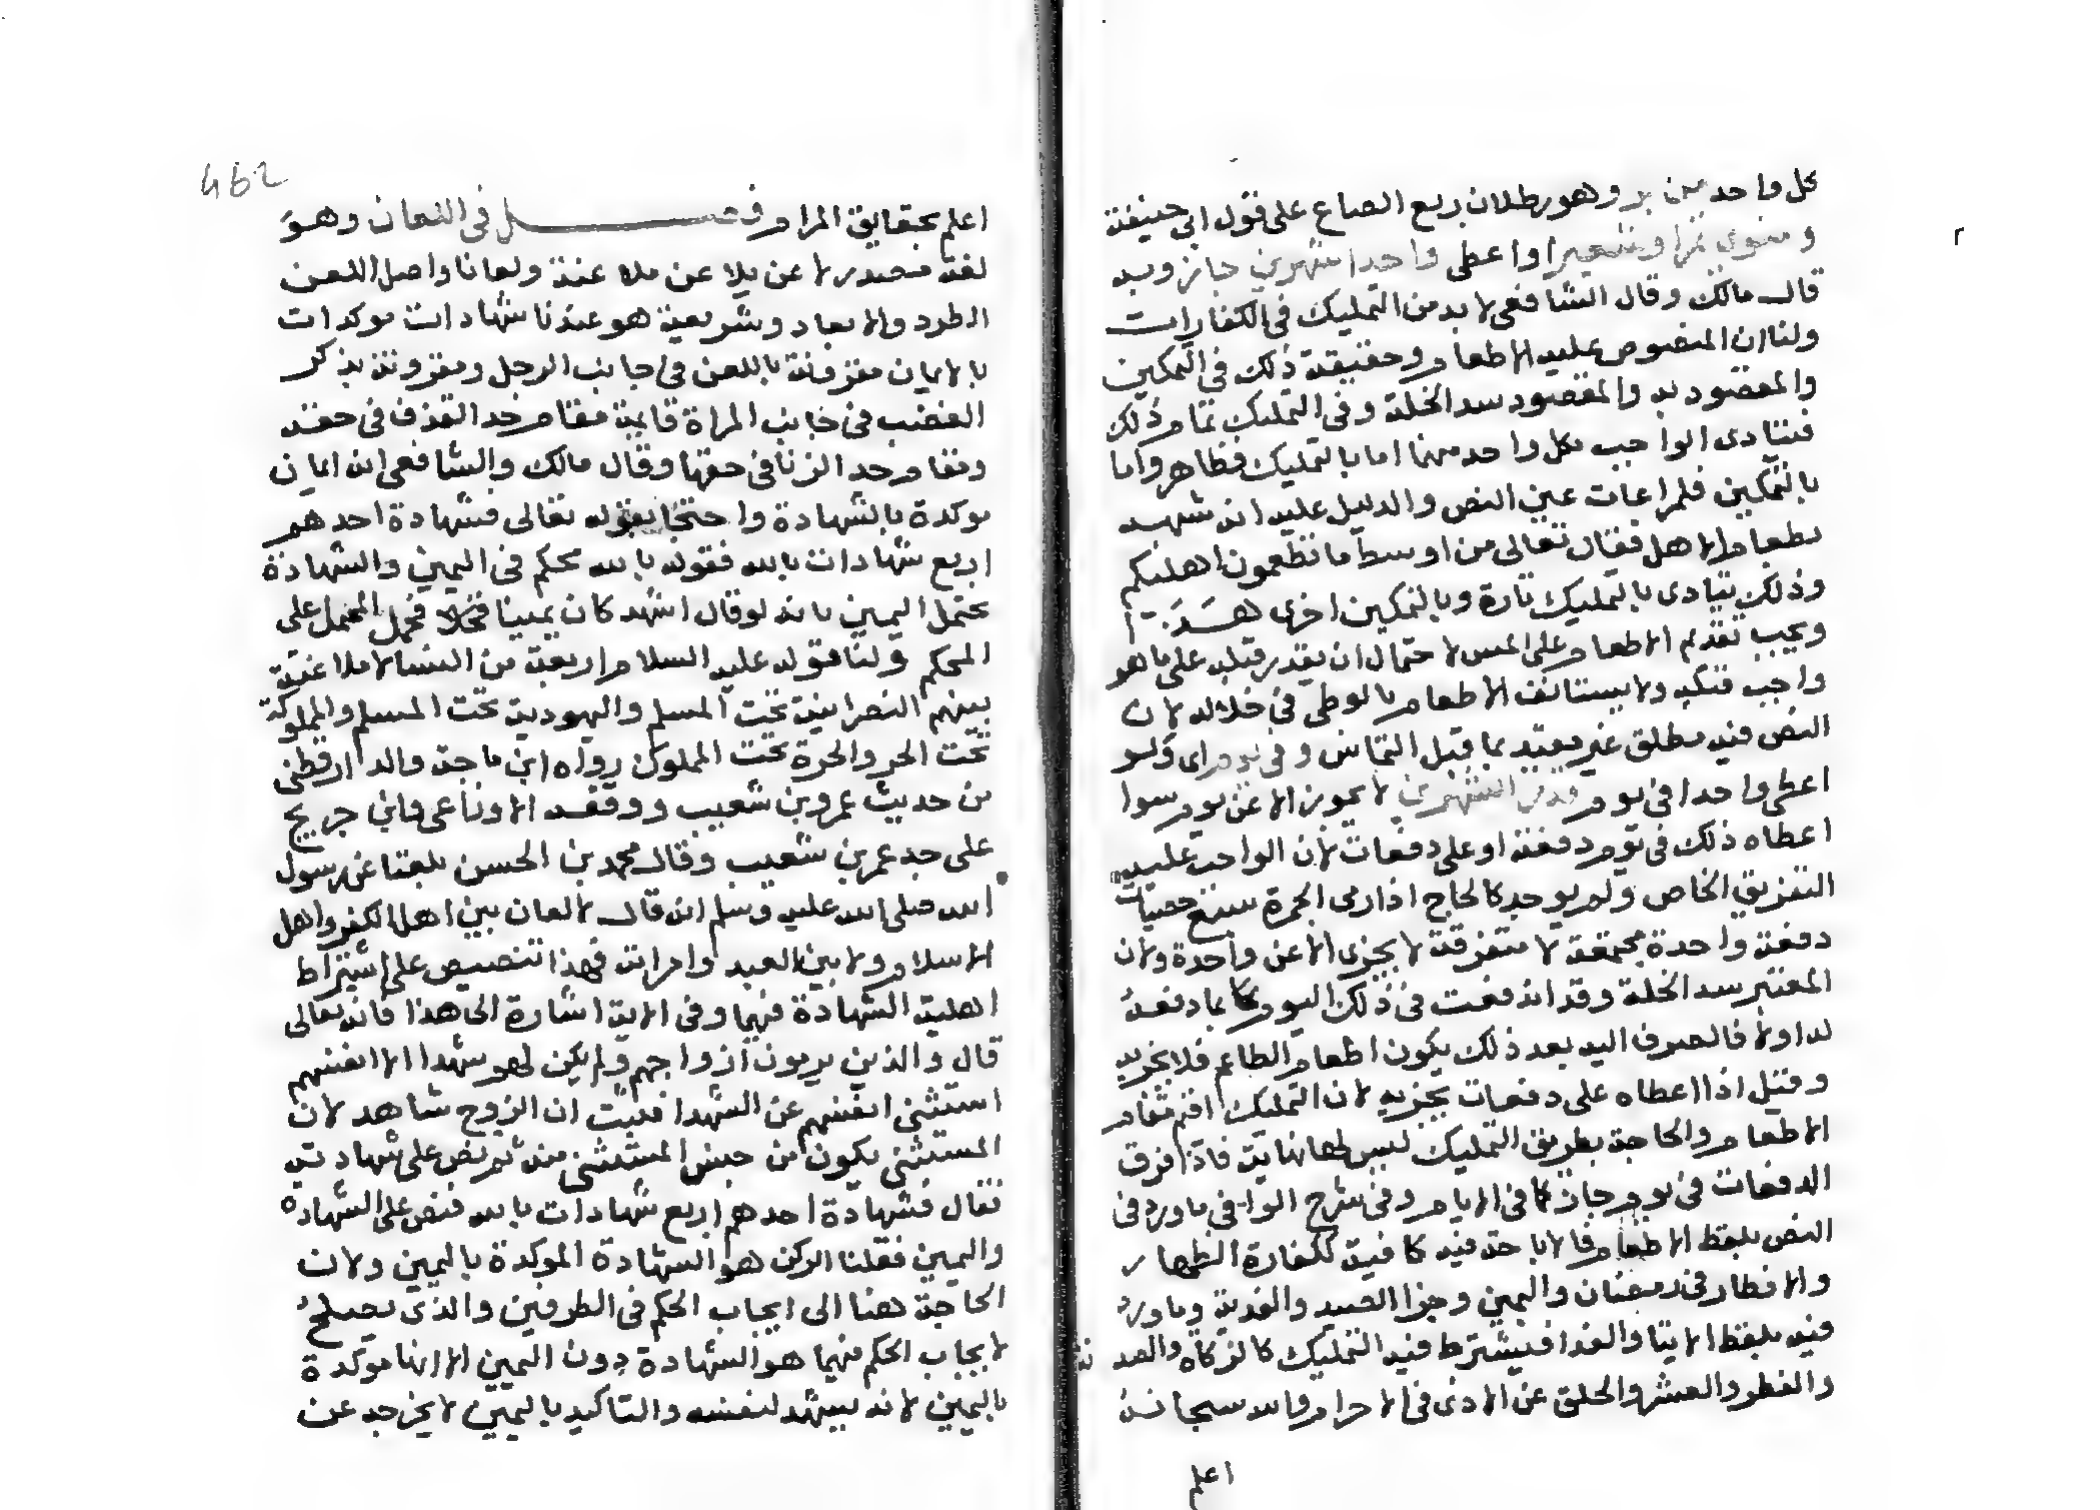 كل واحد من بر وهو رطلان ربع الصاع على قول ابي حنيفة
ومنوي تمرا وشعيرا واعطى واحدا شهرين جاز وبه
قال مالك وقال الشافعي لا بد من التمليك في الكفارات
ولنا ان المنصوص عليه الاطعام وحقيقة ذلك في التمكين
والمقصود به والمقصود سد الخلة وفي التمليك تمام ذلك
فيتادى الواجب بكل واحد منهما اما بالتمليك فظاهر واما
بالتمكين فلمراعات عين النص والدليل عليه انه شبهه
بطعام الاهل فقال تعالى من اوسط ما تطعمون اهليكم
وذلك يتادى بالتمليك تارة وبالتمكين اخرى هذا
ويجب تقديم الاطعام على المس لاحتمال ان يقدر قبله على ما هو
واجب قبله ولا يستانف الاطعام بالوطئ في خلاله لان
النص فيه مطلق غير مقيد بما قبل التماس وفي يوم اي ولو
اعطى واحدا في يوم قدر الشهرين لا يجوز الا عن يوم سوا
اعطاه ذلك في يوم دفعة او على دفعات لان الواجب عليه
التفريق الخاص ولم يوجد كالحاج اذا رمى الجمرة سبع حصيات
دفعة واحدة مجتمعة لا متفرقة لا يجزي الا عن واحدة ولان
المعتبر سد الخلة وقد اندفعت في ذلك اليوم كما بما دفعه
له اولا فالصرف اليه بعد ذلك يكون اطعام الطاعم فلا يجزيه
وقيل اذا اعطاه على دفعات يجزيه لان التمليك اقيم مقام
الاطعام والحاجة بطريق التمليك ليس لها نهاية فاذا فرق
الدفعات في يوم جاز كما في الايام وفي شرح الوافي ما ورد في
النص بلفظ الاطعام فالاباحة فيه كافية ككفارة الظهار
والافطار في رمضان واليمين وجزا الصيد والفدية وما ورد
فيه بلفظ الايتا والفدا فيشترط فيه التمليك كالزكاة والصد
والفطر والعشر والحلق عن الاذى في الاحرام والله سبحانه
اعلم
462
اعلم بحقايق المرام فصل في اللعان وهو
لغة مصدر لاعن يلاعن ملاعنة ولعانا واصل اللعن
الطرد والابعاد وشريعة هو عندنا شهادات موكدات
بالايمان مقرونة باللعن في جانب الرجل ومقرونة بذكر
الغضب في جانب المراة قايمة مقام حد القذف في حقه
ومقام حد الزنا في حقها وقال مالك والشافعي انه ايمان
موكدة بالشهادة واحتجا بقوله تعالى فشهادة احدهم
اربع شهادات بالله فقوله بالله محكم في اليمين والشهادة
يحتمل اليمين بانه لو قال اشهد كان يمينا فيحمل المحتمل على
المحكم ولنا قوله عليه السلام اربعة من النسا لا ملاعنة
بينهم النصرانية تحت المسلم واليهودية تحت المسلم والمملوكة
تحت الحر والحرة تحت المملوك رواه ابن ماجة والدارقطني
من حديث عمرو بن شعيب ووقفه الاوزاعي وابن جريج
على جد عمر بن شعيب وقال محمد بن الحسن بلغنا عن رسول
الله صلى الله عليه وسلم انه قال لا لعان بين اهل الكفر واهل
الاسلام ولا بين العبد وامراته فهذا تنصيص على اشتراط
اهلية الشهادة فيهما وفي الاية اشارة الى هذا فانه تعالى
قال والذين يرمون ازواجهم ولم يكن لهم شهدا الا انفسهم
استثنى انفسهم عن الشهدا فثبت ان الزوج شاهد لان
المستثنى يكون من جنس المستثنى منه ثم نص على شهادته
فقال فشهادة احدهم اربع شهادات بالله فنص على الشهاده
واليمين فقلنا الركن هو الشهادة الموكدة باليمين ولان
الحاجة هنا الى ايجاب الحكم في الطرفين والذي يصلح
لايجاب الحكم فيهما هو الشهادة دون اليمين الا انها موكدة
باليمين لانه يشهد لنفسه والتاكيد باليمين لا يخرجه عن